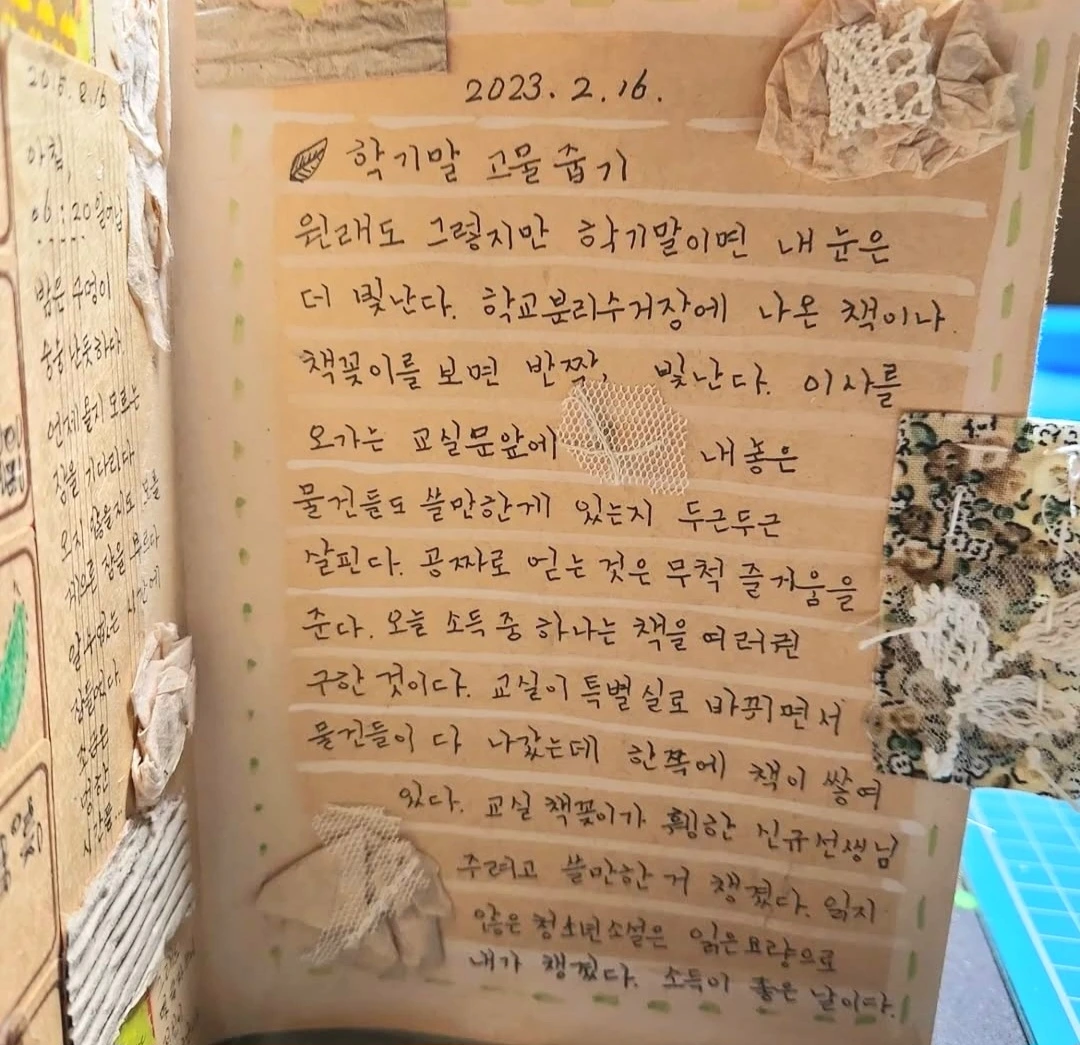 2023. 2. 16.
학기말 고물 줍기
원래도 그렇지만 학기말이면 내 눈은
더 빛난다. 학교분리수거장에 나온 책이나
책꽂이를 보면 반짝, 빛난다. 이사를
오가는 교실문앞에 내놓은
물건들도 쓸만한게 있는지 두근두근
살핀다. 공짜로 얻는 것은 무척 즐거움을
준다. 오늘 소득 중 하나는 책을 여러권
구한 것이다. 교실이 특별실로 바뀌면서
물건들이 다 나갔는데 한쪽에 책이 쌓여
있다. 교실 책꽂이가 휑한 신규선생님
주려고 쓸만한 거 챙겼다. 읽지
않은 청소년소설은 읽은요량으로
내가 챙겼다. 소득이 좋은 날이다.
아침
06:20 일어남
밤은 구멍이
숭숭 난듯하다.
언제올지 모르는
잠을 기다린다
오지 않을지도 모를
잠을 부르다
알 수 없는 시간에
잠들었다.
소란은
멍한